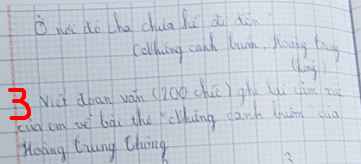 Ở nơi đó cha chưa hề đi đến
(Những cánh buồm, Hoàng Trung
Thông)
3 Viết đoạn văn (200 chữ) ghi lại cảm xúc
của em về bài thơ "Những cánh buồm của
Hoàng Trung Thông